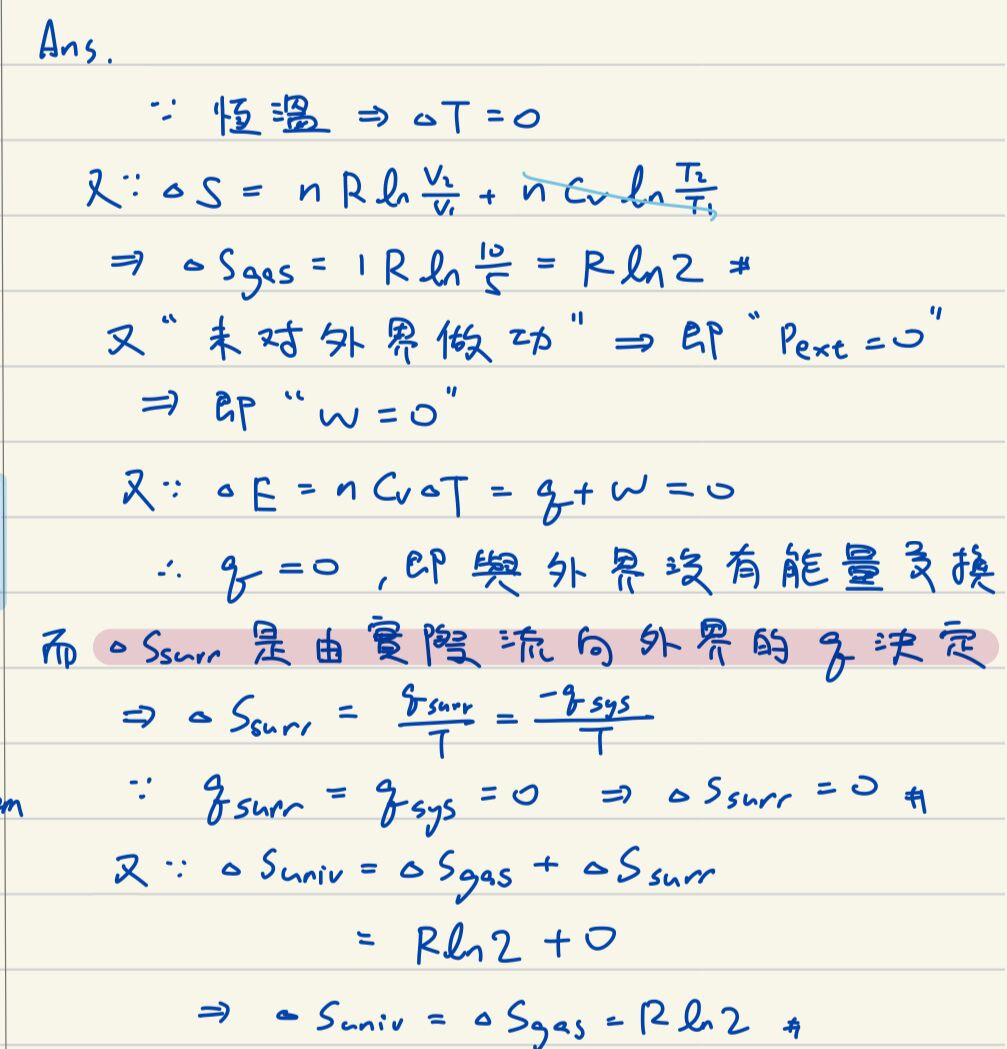 Ans.
∵ 恆溫 ⇒ △T = 0
又∵ △S = n R ln V₂/V₁ + n Cv ln T₂/T₁
⇒ △Sgas = 1 R ln 10/5 = R ln 2 #
又 "未对外界做功" ⇒ 即 "Pext = 0"
⇒ 即 "w = 0"
又∵ △E = n Cv △T = q + w = 0
∴ q = 0 , 即與外界沒有能量交換
而 △Ssurr 是由實際流向外界的 q 決定
⇒ △Ssurr = qsurr/T = -qsys/T
∵ qsurr = qsys = 0 ⇒ △Ssurr = 0 #
又∵ △Suniv = △Sgas + △Ssurr
= R ln 2 + 0
⇒ △Suniv = △Sgas = R ln 2 #